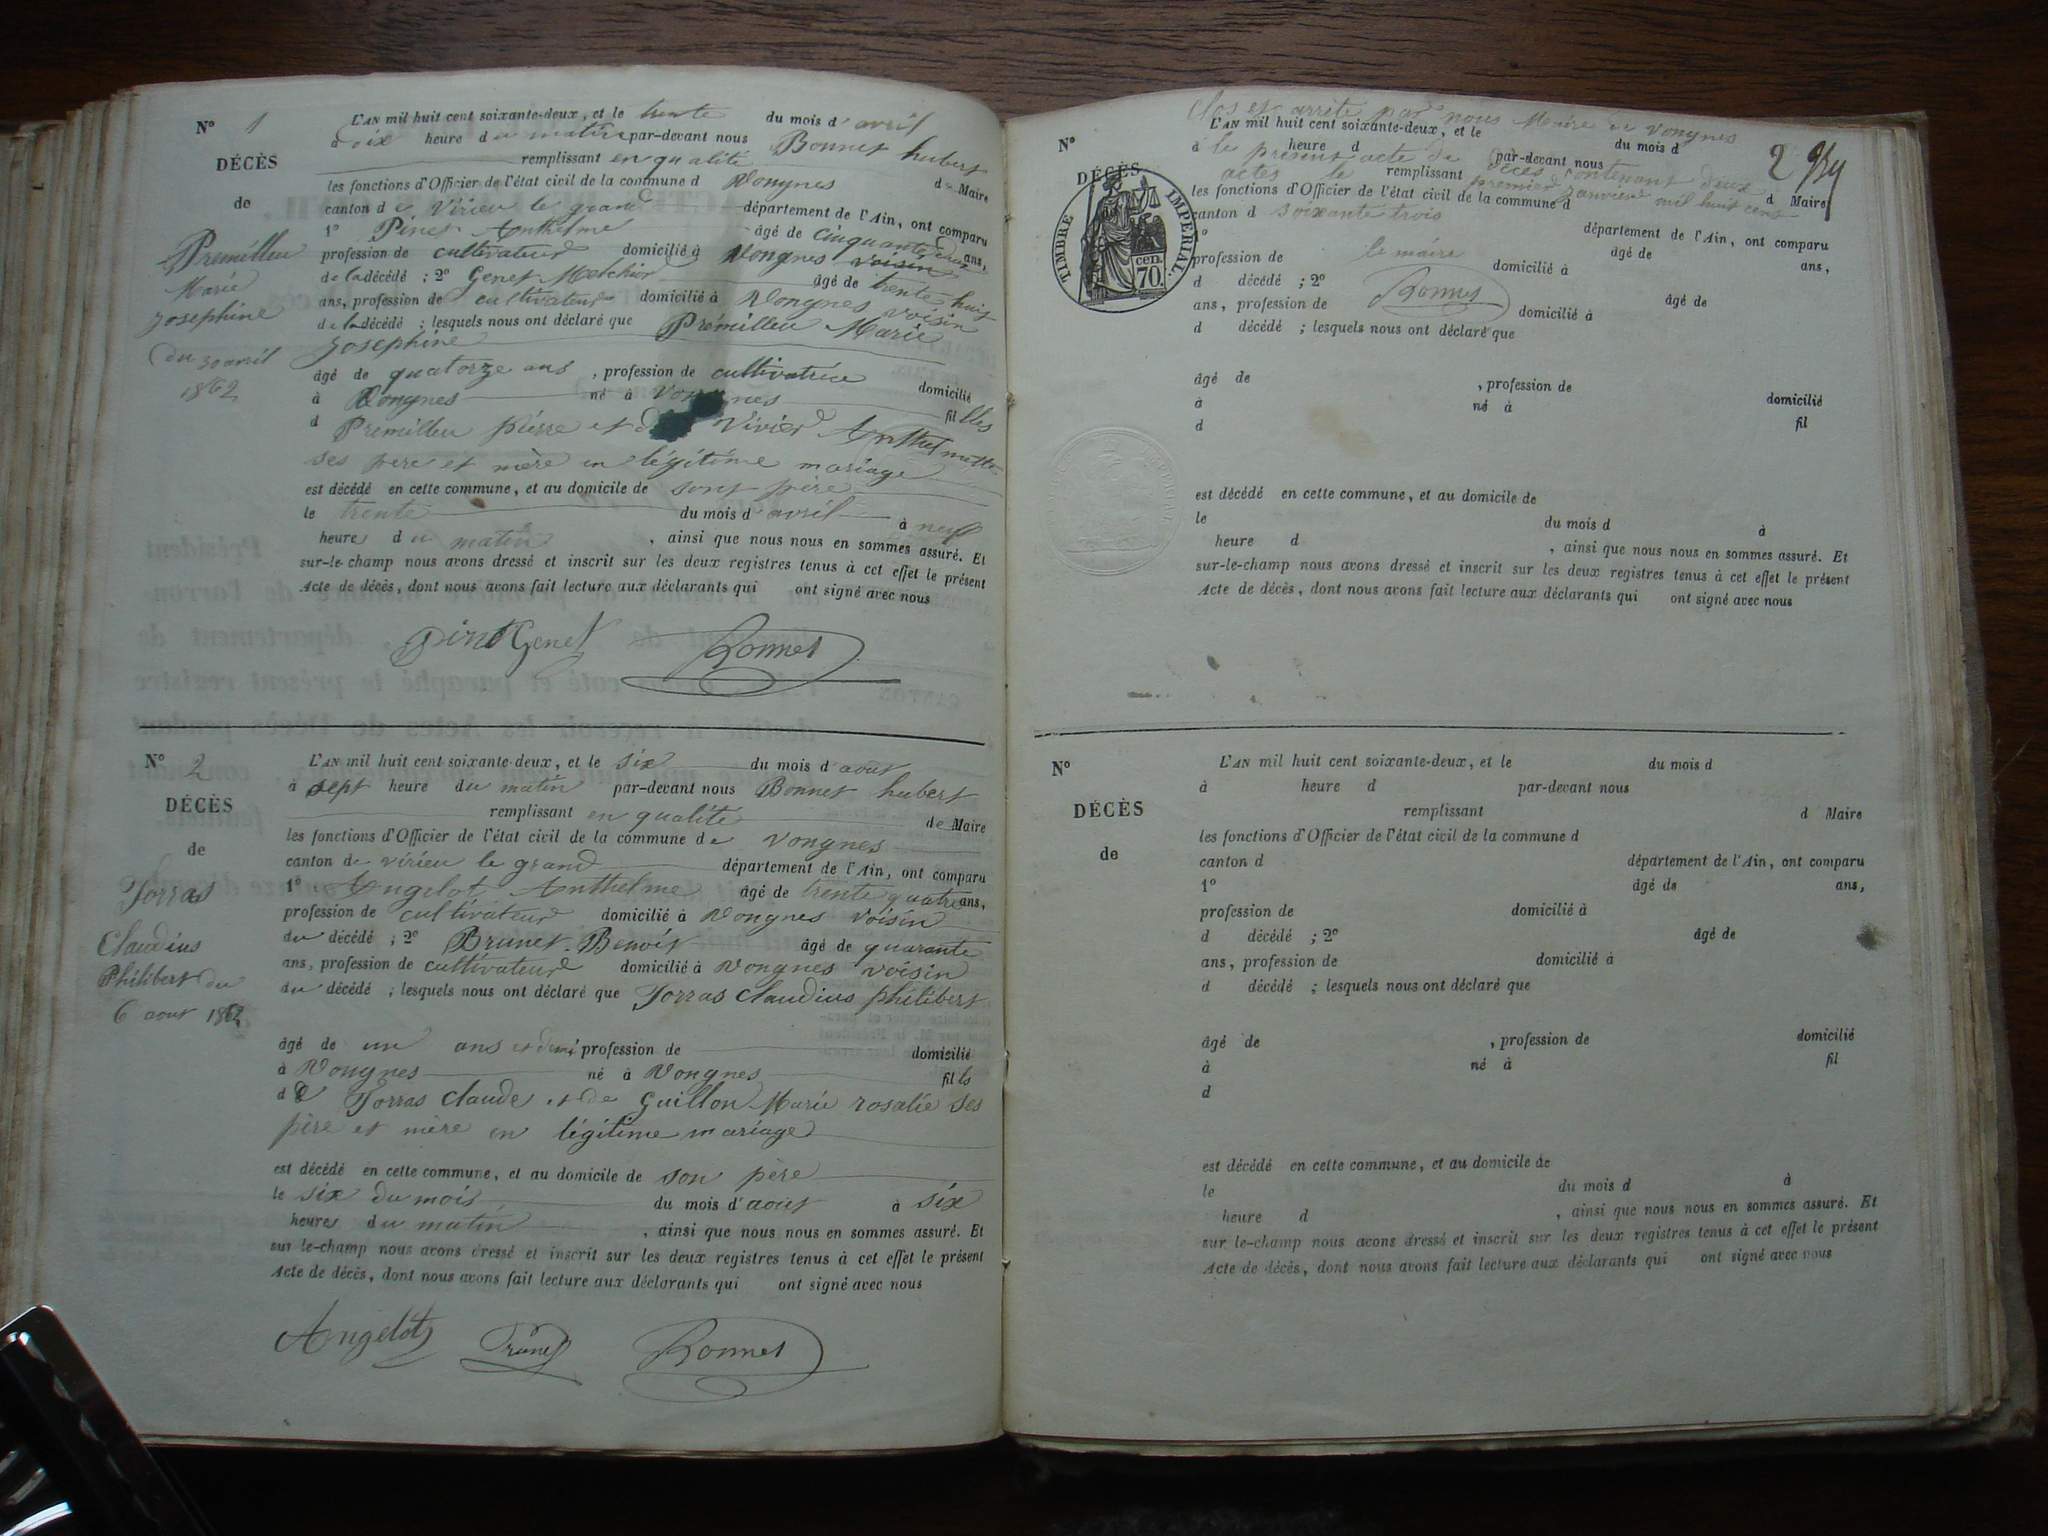 N° 1
DÉCÈS
de
Premillieu
Marie
Josephine
du 30 avril
1862
L'AN mil huit cent soixante-deux, et le trente du mois d'avril
à dix heure du matin par-devant nous Bonnet hubert
remplissant en qualité de Maire
les fonctions d'Officier de l'état civil de la commune d Vongnes
canton de Virieu le grand département de l'Ain, ont comparu
1° Pinet Anthelme âgé de cinquante deux ans,
profession de cultivateur domicilié à Vongnes voisin
de la décédé ; 2° Genet Melchior âgé de trente huit
ans, profession de cultivateur domicilié à Vongnes voisin
de la décédé ; lesquels nous ont déclaré que Prémillieu Marie
Josephine
âgé de quatorze ans , profession de cultivatrice domicilié
à Vongnes né à Vongnes fil lles
d Premillieu pierre et d Vivier Anthelmette
ses pere et mère en légitime mariage
est décédé en cette commune, et au domicile de sont père
le trente du mois d'avril à neuf
heures du matin , ainsi que nous nous en sommes assuré. Et
sur-le-champ nous avons dressé et inscrit sur les deux registres tenus à cet effet le présent
Acte de décès, dont nous avons fait lecture aux déclarants qui ont signé avec nous
Pinet Genet Bonnet
N° 2
DÉCÈS
de
Torras
Claudius
Philibert du
6 aout 1862
L'AN mil huit cent soixante-deux, et le six du mois d'aout
à sept heure du matin par-devant nous Bonnet hubert
remplissant en qualité de Maire
les fonctions d'Officier de l'état civil de la commune de Vongnes
canton de virieu le grand département de l'Ain, ont comparu
1° Angelot Anthelme âgé de trente quatre ans,
profession de cultivateur domicilié à Vongnes voisin
du décédé ; 2° Brunet Benoit âgé de quarante
ans, profession de cultivateur domicilié à Vongnes voisin
du décédé ; lesquels nous ont déclaré que Torras Claudius philibert
âgé de un ans et demi profession de domicilié
à Vongnes né à Vongnes fil ls
de Torras Claude et de Guillon Marie rosalie ses
père et mère en légitime mariage
est décédé en cette commune, et au domicile de son père
le six du mois du mois d'aout à six
heures du matin , ainsi que nous nous en sommes assuré. Et
sur le-champ nous avons dressé et inscrit sur les deux registres tenus à cet effet le présent
Acte de décès, dont nous avons fait lecture aux déclarants qui ont signé avec nous
Angelot Brunet Bonnet
clos et arrête par nous Maire de Vongnes
le présent acte de décès contenant deux
actes le premier janvier mil huit cent
soixante trois
le maire
Bonnet
2
TIMBRE IMPERIAL
70 cen.
N°
DÉCÈS
de
L'AN mil huit cent soixante-deux, et le du mois d
à heure d par-devant nous
remplissant d Maire
les fonctions d'Officier de l'état civil de la commune d
canton d département de l'Ain, ont comparu
1° âgé de ans,
profession de domicilié à
d décédé ; 2° âgé de
ans, profession de domicilié à
d décédé ; lesquels nous ont déclaré que
âgé de , profession de domicilié
à né à fil
d
est décédé en cette commune, et au domicile de
le du mois d à
heure d , ainsi que nous nous en sommes assuré. Et
sur-le-champ nous avons dressé et inscrit sur les deux registres tenus à cet effet le présent
Acte de décès, dont nous avons fait lecture aux déclarants qui ont signé avec nous
N°
DÉCÈS
de
L'AN mil huit cent soixante-deux, et le du mois d
à heure d par-devant nous
remplissant d Maire
les fonctions d'Officier de l'état civil de la commune d
canton d département de l'Ain, ont comparu
1° âgé de ans,
profession de domicilié à
d décédé ; 2° âgé de
ans, profession de domicilié à
d décédé ; lesquels nous ont déclaré que
âgé de , profession de domicilié
à né à fil
d
est décédé en cette commune, et au domicile de
le du mois d à
heure d , ainsi que nous nous en sommes assuré. Et
sur le-champ nous avons dressé et inscrit sur les deux registres tenus à cet effet le présent
Acte de décès, dont nous avons fait lecture aux déclarants qui ont signé avec nous